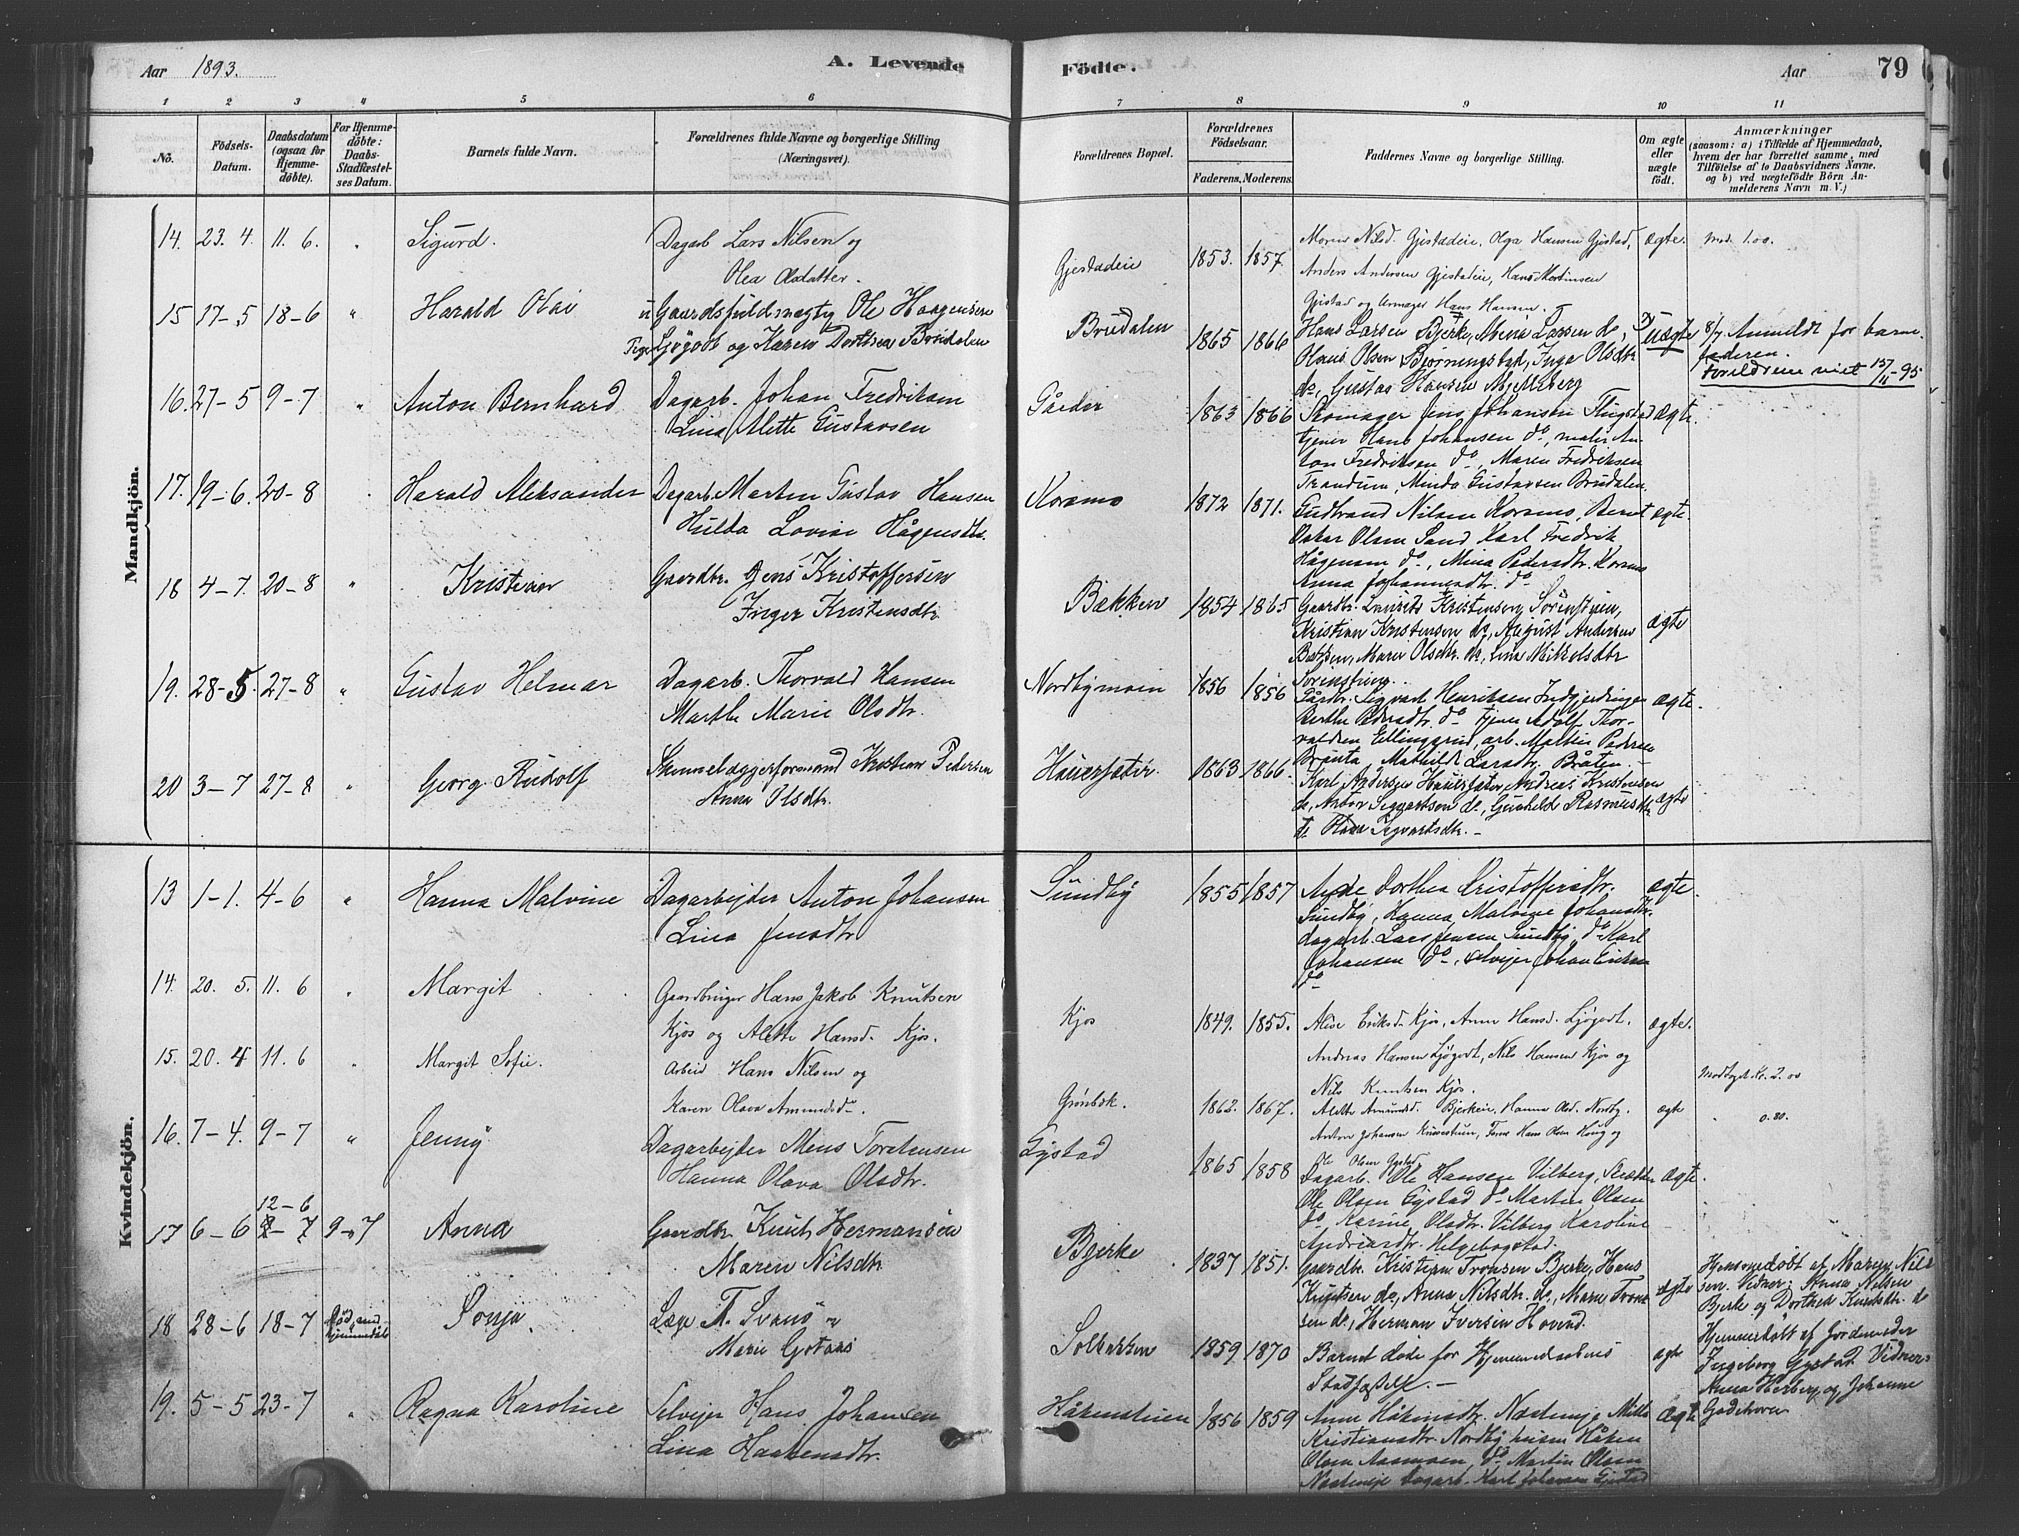 Aar 1893.
A. Levende Födte.
Aar 79
1 2 3 4 5 6 7 8 9 10 11
No.
Födsels-Datum.
Daabsdatum (ogsaa for Hjemme-döbte).
For Hjemme-döbte: Daabs-Stadfæstel-ses Datum.
Barnets fulde Navn.
Forældrenes fulde Navne og borgerlige Stilling (Næringsvei).
Forældrenes Bopæl.
Forældrenes Födselsaar.
Faderens. Moderens.
Faddernes Navne og borgerlige Stilling.
Om ægte eller uægte födt.
Anmærkninger
(saasom: a) i Tilfælde af Hjemmedaab,
hvem der har forrettet samme, med
Tilföielse af to Daabsvidners Navne.
og b) ved uægtefödte Börn An-
melderens Navn m. V.)
Mandkjön.
14. 23. 4. 11. 6. Sigurd. Dagarb Lars Nilsen og
Olea Olsdatter.
Gjestadeie 1853. 1857.
Nilsd. Gjestadeie, Olga Hansen Gjestad,
Anders Andersen Gjestadeie, Hans Martinsen
Gjestad og Hans Hansen.
ægte. Mod. 1.00.
15 17-5 18-6 " Harald Olai u Gaardsfuldmægtig Ole Haagensen
Ljøgodt og Karen Dorthea Brudalen
Brudalen 1865 1866
Hans Larsen Bjerke, Mina Larsen do,
Olaus Olsen Bjørningstad, Inga Olsdtr
do, Gustav Hansen
uægte 8/7 Anmeldt for barne-
faderen.
Foreldrene viet 15/11-95
16. 27-5 9-7 " Anton Bernhard Dagarb. Johan Fredriksen
Lina Alette Gustavsen
Gårder 1863 1866
Skomager Jens Johansen
tjener Hans Johansen do, maler An-
ton Fredriksen do, Maren Fredriksen
Trandum, Minda Gustavsen Brudalen
ægte.
17. 19-6. 20-8 Harald Aleksander Dagarb. Martin Gustav Hansen
Hulda Lovise Hågensdtr.
Korsmo 1872 1871.
Gudbrand Nilsen Korsmo, Bernt
Oskar Olsen Sand Karl Fredrik
Hågensen do, Mina Pedersdtr. Korsmo
Anna Johannesdtr. do
ægte.
18 4-7. 20-8 " Kristian Gaardbr. Jens Kristoffersen
Inger Kristensdtr.
Bækken 1854 1865
Gaardbr. Lauritz Kristensen,
Kristian Kristensen do, August Andersen
Bækken, Maren Olsdtr. do, Lina Mikkelsdtr
ægte
19. 28-5. 27-8 " Gustav Helmar Dagarb. Thorvald Hansen
Marthe Marie Olsdtr.
Nordbymoen 1856 1856
Gårdbr. Sigvart Henriksen
Berthe Pedersdtr. do tjener Adolf Thor-
valdsen arb. Martin Pedersen
Mathilde Larsdtr. Bråten.
ægte.
20 3-7 27-8 " Georg Rudolf Kristian Pedersen
Anna Olsdtr.
Hauersæter. 1863 1866.
Karl Andersen Hauersæter, Andreas Kristensen
do, Anton Siggartsen do, Gunhild Rasmusdtr.
do Sigvartsdtr.
ægte
Kvindekjön.
13 1-1. 4-6 " Hanna Malvine Dagarbejder Anton Johansen
Lina Jensdtr
Sundby 1855 1857
Dorthea Kristoffersdtr.
Sundby, Hanna Malvine Johansdtr.
dagarb. Lars Jensen Sundby, do Karl
Johansen do, selvejer Johan Eriksen
do
ægte.
14. 20. 5. 11. 6 Margit Gaardbruger Hans Jakob Knutsen
Kjos og Alette Hansd. Kjos.
Kjos 1849. 1855.
Eriksd. Kjos, Anne Hansd. Ljøgodt,
Andreas Hansen Ljøgodt, Nils Hansen Kjos og
Nils Knutsen Kjos.
ægte. Modtaget Kr. 2.00
15. 20. 4 11. 6 Margit Sofie. Arbeid. Hans Nilsen og
Karen Olava
Grønbæk. 1862. 1867.
Alette Amundsd. Bjerkeie, Hanna Olsd. Nordby,
Anton Johansen Hans Olsen Haug og
Ole Olsen Gystad
ægte 0.80.
16. 7-4. 9-7 " Jenny Dagarbejder Mens Torstensen
Hanna Olava Olsdtr.
Gystad 1865 1858
Dagarb. Ole Hansen Vilberg,
Ole Olsen Gystad do Martin Olsen
do Karine Olsdtr. Vilberg Karoline
Andriasdtr. Helgebogstad.
ægte.
17 6-6 12-6 2-7 9-7 Anna Gaardbr. Knut Hermansen
Maren Nilsdtr.
Bjerke 1837 1851.
Gaardbr. Kristian Tronsen Bjerke, Hans
Knutsen do, Anna Nilsdtr. do, Maren Tron-
sen do, Herman Iversen Hovind.
ægte
Hjemmedøbt af Maren Nil-
sen. Vidner: Anna Nilsen
Bjerke og Dorthea Knutsdtr. do
18 28-6 18-7 Død, hjemmedøbt Sonja Læge T. Svanø
Marie
Solbakken 1859 1870
Barnet døde før Hjemmedaabens
Stadfæstelse.
ægte
Hjemmedøbt af Jordemoder
Ingeborg Gystad. Vidner:
Anna Herberg og Johanne
19. 5-5 23-7 " Ragna Karoline Selvejer Hans Johansen
Lina Haakensdtr.
Håkenstuen 1856 1859
Anne Håkensdtr.
Kristiansdtr. Nordby, Håken
Olsen Aasmoen, do Martin Olsen
Dagarb. Karl Johansen Gjestad
ægte